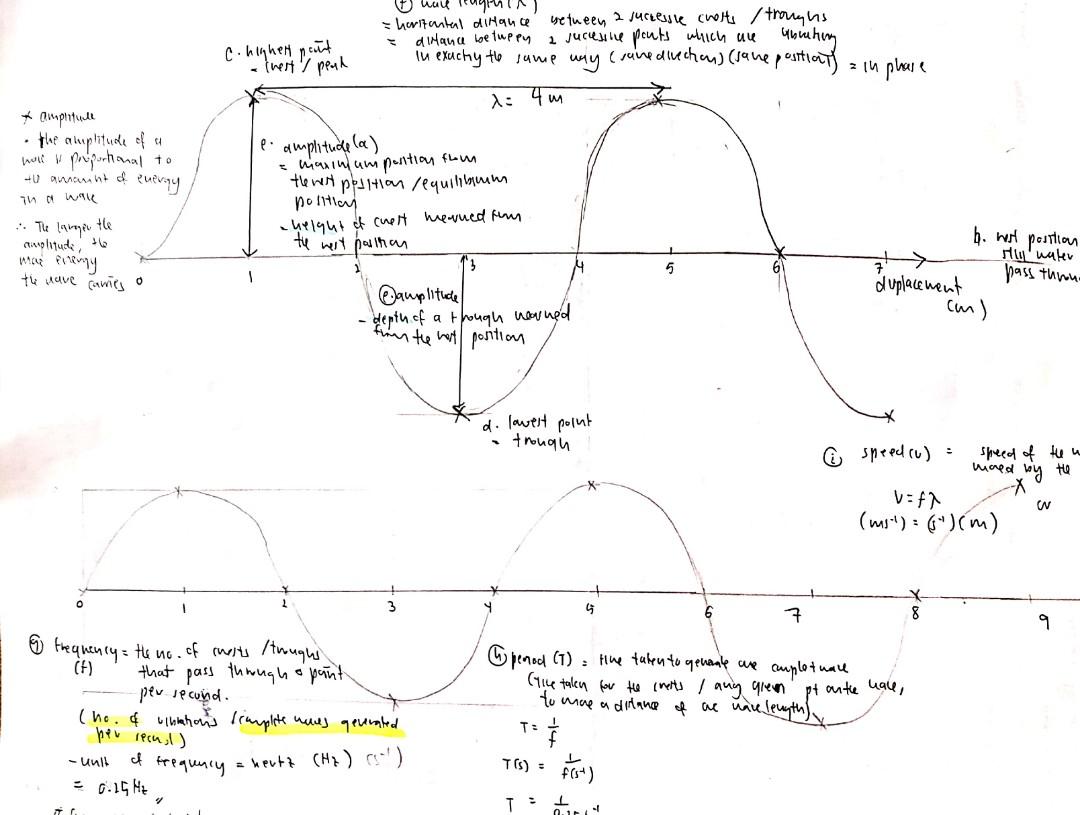 (f) wave length (λ)
= horizontal distance between 2 successive crests / troughs
= distance between 2 successive points which are vibrating
in exactly the same way (same direction) (same position) = in phase
c. highest point
= crest / peak
λ = 4 m
* amplitude
• the amplitude of a
wave is proportional to
the amount of energy
in a wave
∴ The larger the
amplitude, the
more energy
the wave carries
e. amplitude (a)
= maximum position from
the rest position / equilibrium
position
- height of crest measured from
the rest position
b. rest position
still water
pass through
0 1 2 3 4 5 6 7
displacement
(m)
(e) amplitude
- depth of a trough measured
from the rest position
d. lowest point
= trough
(i) speed (v) = speed of the
moved by the
v = fλ
(ms⁻¹) = (s⁻¹)(m)
0 1 2 3 4 5 6 7 8 9
(g) frequency = the no. of crests / troughs
(f) that pass through a point
per second.
(no. of vibrations / complete waves generated
per second)
- unit of frequency = hertz (Hz) (s⁻¹)
= 0.25 Hz
(h) period (T) = time taken to generate one complete wave
(time taken for the crests / any given pt on the wave,
to move a distance of one wavelength)
T = 1/f
T(s) = 1/f(s⁻¹)
T = 1/0.25 s⁻¹